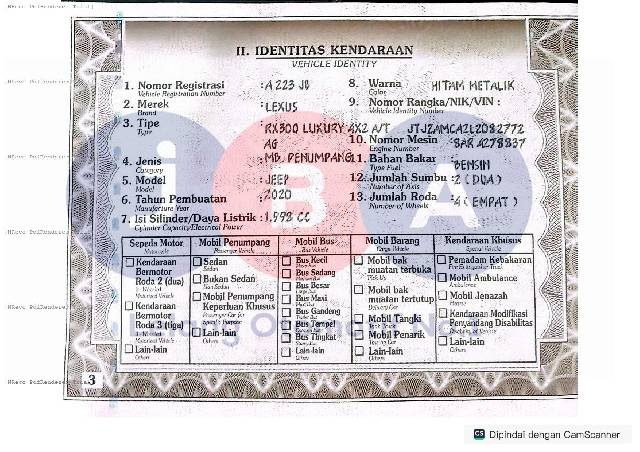 II. IDENTITAS KENDARAAN
VEHICLE IDENTITY
1. Nomor Registrasi : A 223 JQ
Vehicle Registration Number
2. Merek : LEXUS
Brand
3. Tipe : RX300 LUXURY 4X2 A/T
Type
AG
4. Jenis : MB. PENUMPANG
Category
5. Model : JEEP
Model
6. Tahun Pembuatan : 2020
Manufacture Year
7. Isi Silinder/Daya Listrik : 1.998 CC
Cylinder Capacity/Electrical Power
8. Warna HITAM METALIK
Color
9. Nomor Rangka/NIK/VIN :
Vehicle Identity Number
JTJZAMCA2L2032772
10. Nomor Mesin 8AR 4278337
Engine Number
11. Bahan Bakar : BENSIN
Type Fuel
12. Jumlah Sumbu : 2 (DUA)
Number of Axis
13. Jumlah Roda : 4 (EMPAT)
Number of Wheels
Sepeda Motor
Motorcycle
Kendaraan
Bermotor
Roda 2 (dua)
Kendaraan
Bermotor
Roda 3 (tiga)
Lain-lain
Others
Mobil Penumpang
Passenger Car
Sedan
Sedan
Bukan Sedan
Mobil Penumpang
Keperluan Khusus
Lain-lain
Others
Mobil Bus
Bus Kecil
Bus Sedang
Bus Besar
Bus Maxi
Bus Gandeng
Bus Tempel
Bus Tingkat
Lain-lain
Mobil Barang
Mobil bak
muatan terbuka
Mobil bak
muatan tertutup
Mobil Tangki
Mobil Penarik
Lain-lain
Others
Kendaraan Khusus
Special Vehicle
Pemadam Kebakaran
Mobil Ambulance
Ambulance
Mobil Jenazah
Kendaraan Modifikasi
Penyandang Disabilitas
Lain-lain
Others
iBA
3
CS Dipindai dengan CamScanner